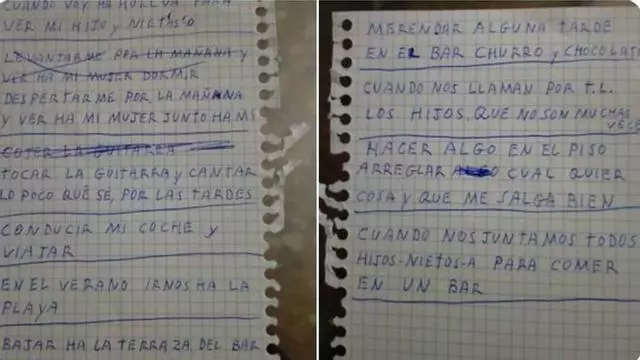 CUANDO VOY HA HUELVA PARA
VER MI HIJO Y NIETAS'O
LEVANTARME POR LA MAÑANA Y
VER HA MI MUJER DORMIR
DESPERTARME POR LA MAÑANA
Y VER HA MI MUJER JUNTO HA MI
COJER LA GUITARRA
TOCAR LA GUITARRA Y CANTAR
LO POCO QUÉ SE, POR LAS TARDES
CONDUCIR MI COCHE Y
VIAJAR
EN EL VERANO IRNOS HA LA
PLAYA
BAJAR HA LA TERRAZA DEL BAR
MERENDAR ALGUNA TARDE
EN EL BAR CHURRO Y CHOCOLAT
CUANDO NOS LLAMAN POR T.L.
LOS HIJOS, QUE NO SON MUCHAS
VECE
HACER ALGO EN EL PISO
ARREGLAR CUAL QUIER
COSA Y QUE ME SALGA BIEN
CUANDO NOS JUNTAMOS TODOS
HIJOS-NIETOS-A PARA COMER
EN UN BAR